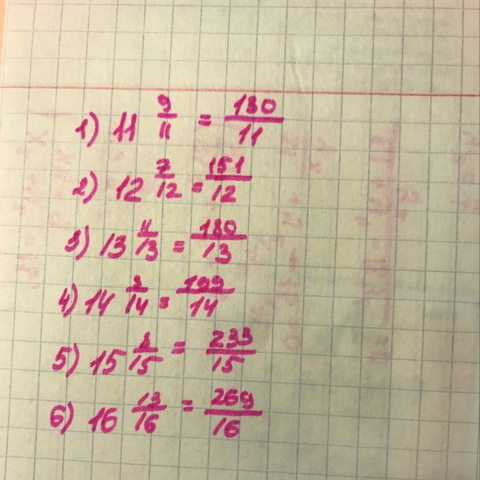 1) 11 9/11 = 130/11
2) 12 7/12 = 151/12
3) 13 11/13 = 180/13
4) 14 3/14 = 199/14
5) 15 8/15 = 233/15
6) 16 13/16 = 269/16